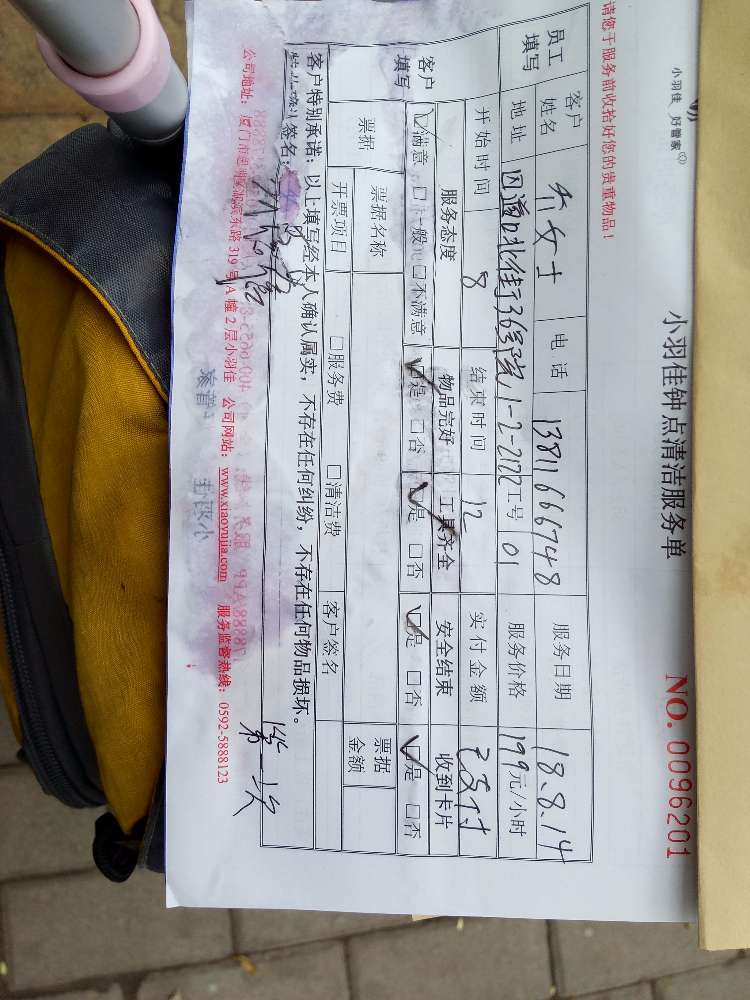 小羽佳 好管家
小羽佳钟点清洁服务单
NO. 0096201
请您于服务前收拾好您的贵重物品！
员工填写 客户姓名 女士 电话 13811666748 服务日期 18.8.14
地址 街36号院1-2-2172 工号 01 服务价格 199元/小时
开始时间 8 结束时间 12 实付金额 已支付
客户填写 服务态度 物品完好 工具齐全 安全结束 收到卡片
☑满意 □一般 □不满意 ☑是 □否 ☑是 □否 ☑是 □否 ☑是 □否
票据 票据名称 □服务费 □清洁费 客户签名 票据金额
开票项目
客户特别承诺：以上填写经本人确认属实，不存在任何纠纷，不存在任何物品损坏。
签名：
第一次
公司地址：厦门市思明区湖滨东路319号A幢2层小羽佳 公司网站：www.xiaoyujia.com 服务监督热线：0592-5888123